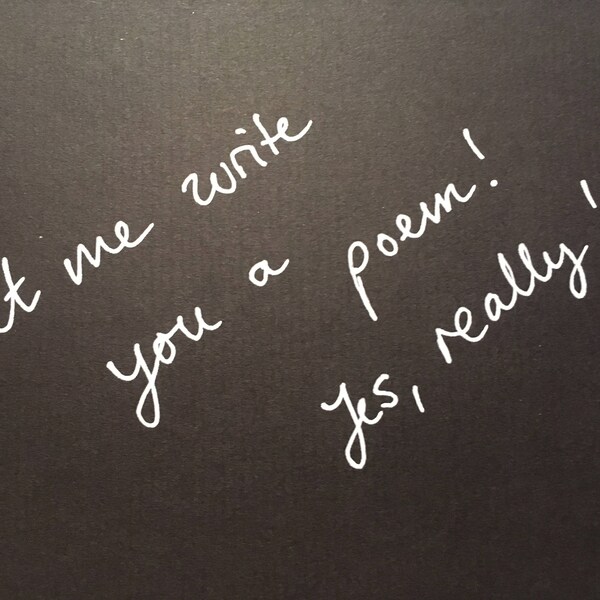 t me write
you a poem!
Yes, really!